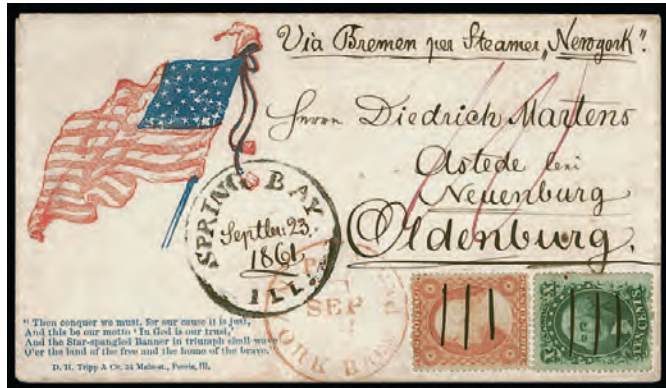 Via Bremen per Steamer „Newyork".
Herrn Diedrich Martens
Astede bei
Neuenburg
Oldenburg.
SPRING BAY
Septber. 23.
1861
ILL.
SEP
" Then conquer we must, for our cause it is just,
And this be our motto ' In God is our trust,'
And the Star-spangled Banner in triumph shall wave
O'er the land of the free and the home of the brave."
D. H. Tripp & Co. 34 Main-st., Peoria, Ill.